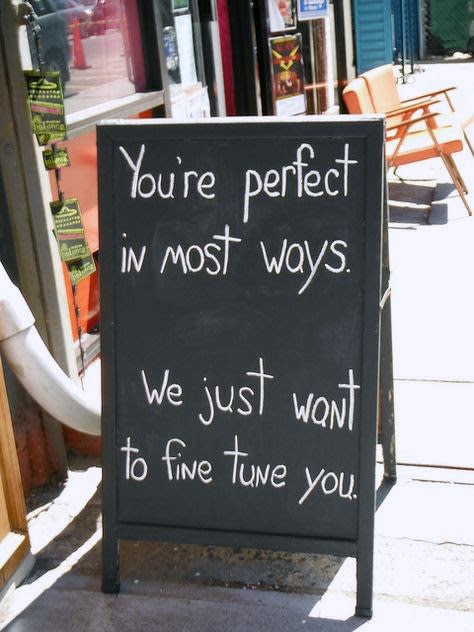 You're perfect
in most ways.
We just want
to fine tune you.